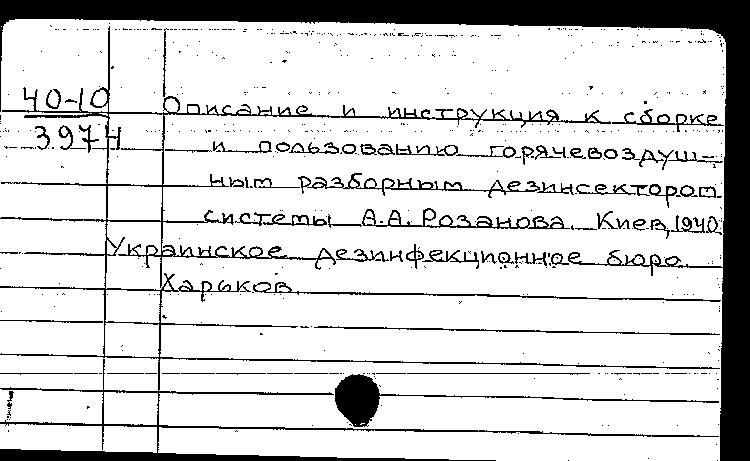 40-10
3974
Описание и инструкция к сборке
и пользованию горячевоздуш-
ным разборным дезинсектором
системы А.А. Розанова. Киев, 1940.
Украинское дезинфекционное бюро.
Харьков.